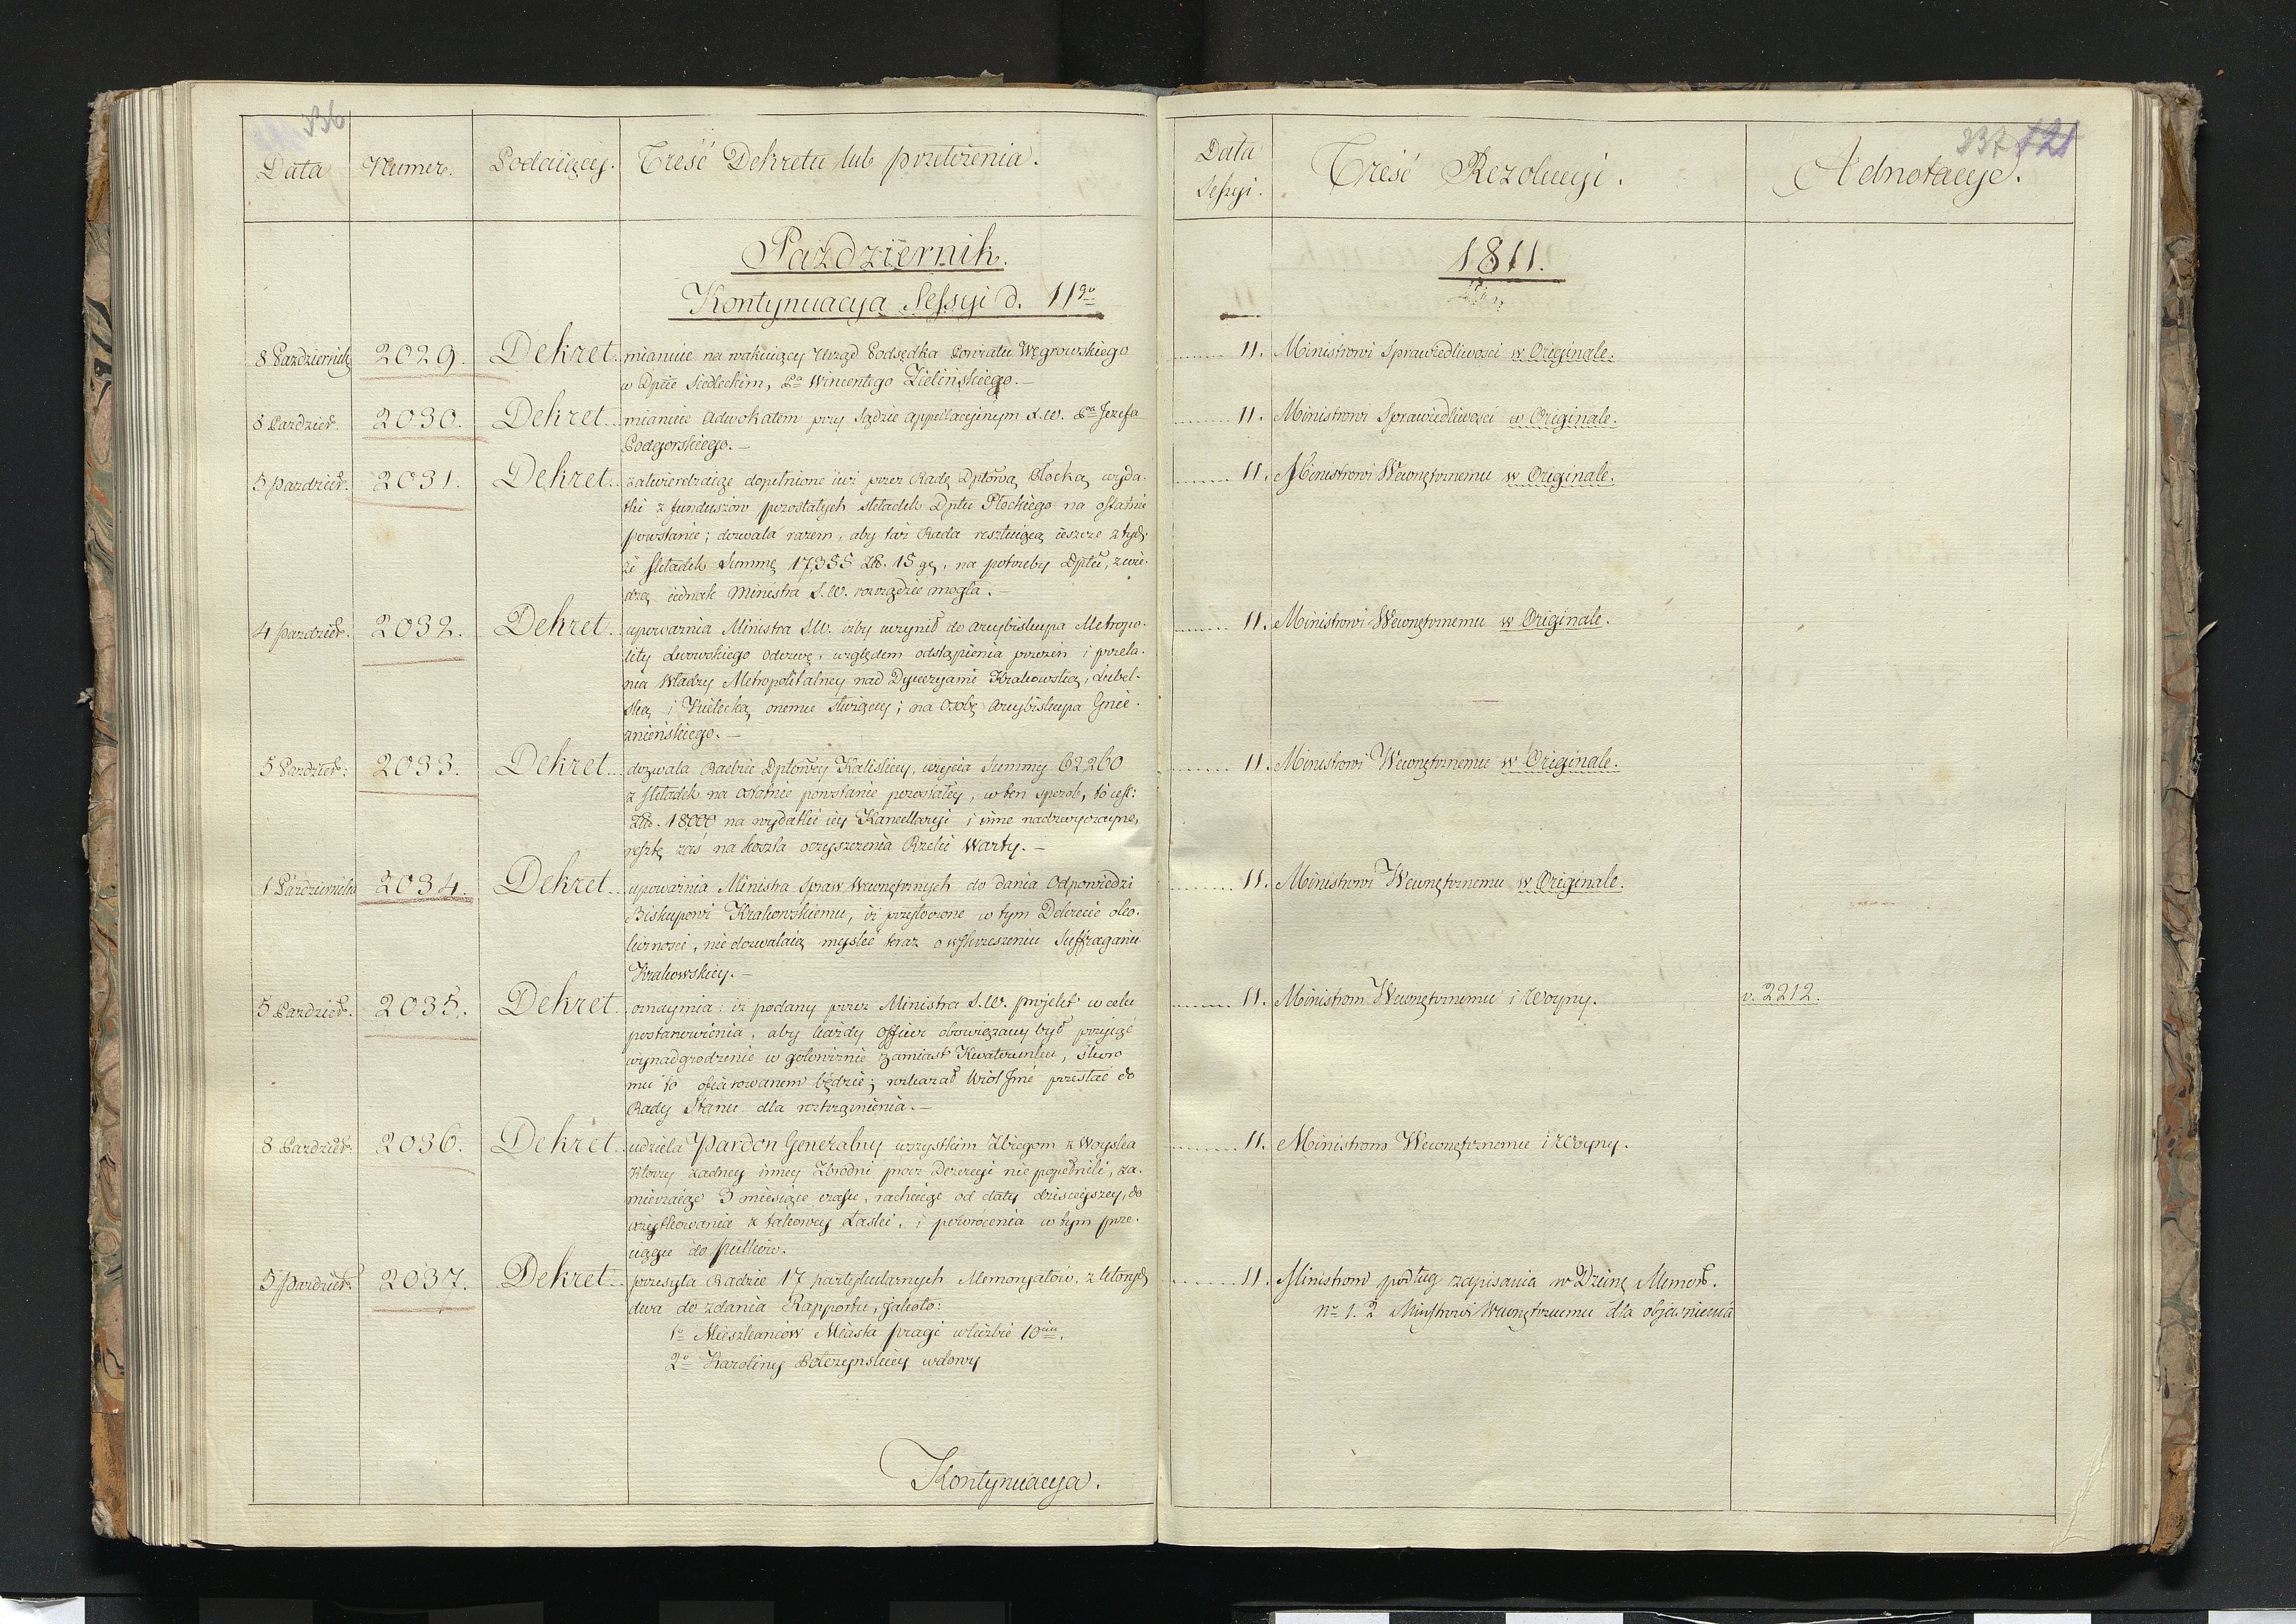 336
Data
Numer.
Podaiący.
Treść Dekretu lub przełożenia.
Październik.
Kontynuacya Sessyi d. 11go
8 Października 2029. Dekret mianuie na wakuiący Urząd Podsędka Powiatu Węgrowskiego
w Dptcie Siedleckim, Pa Wincentego Zielińskiego.—
8 Paździer. 2030. Dekret mianuie Adwokatem przy Sądzie Appellacyjnym X.W. Pa Jozefa
Podgorskiego.—
5 Paździer. 2031. Dekret zatwierdzaiąc dopełnione iuż przez Radę Dptową Płocką wyda-
tki z funduszów pozostałych składek Dptu Płockiego na ostatnie
powstanie; dozwala razem, aby taż Rada resztuiącą ieszcze z tych-
że składek Summę 17,355 Zł. 15 gr, na potrzeby Dptu, z wie-
dzą iednak Ministra S.W. rozrządzić mogła.—
4 Paździer. 2032. Dekret upoważnia Ministra S.W. iżby uczynił do Arcybiskupa Metropo-
lity Lwowskiego odezwę, względem odstąpienia przezeń i przela-
nia Władzy Metropolitalney nad Dyecezyami Krakowską, Lubel-
ską i Kielecką onemu służącey; na osobę Arcybiskupa Gnie-
znieńskiego.—
5 Paździer. 2033. Dekret dozwala Radzie Dptowey Kaliskiey, użycia Summy 62260
z składek na ostatnie powstanie pozostałey, w ten sposob, to iest:
Zł. 18000 na wydatki iey Kancellaryi i inne nadzwyczayne,
resztę zaś na koszta oczyszczenia Rzeki Warty.—
1 Października 2034. Dekret upoważnia Ministra Spraw Wewnętrznych do dania Odpowiedzi
Biskupowi Krakowskiemu, iż przytoczone w tym Dekrecie oko-
liczności, nie dozwalaią myśleć teraz o wskrzeszeniu Suffraganii
Krakowskiey.—
5 Paździer. 2035. Dekret oznaymia, iż podany przez Ministra S.W. projekt w celu
postanowienia, aby każdy Officer obowiązany był przyiąć
wynadgrodzenie w gotowiznie zamiast Kwaterunku, skoro
mu to ofiarowanem będzie; rozkazał Król Jmć przesłać do
Rady Stanu dla roztrząśnienia.—
8 Paździer. 2036. Dekret udziela Pardon Generalny wszystkim Zbiegom z Woyska
Ktorzy żadney inney Zbrodni procz Dezercyi nie popełnili, za-
mierzaiąc 3 miesiące czasu, rachuiąc od daty dzisieyszey, do
użytkowania z takowey Łaski, i powrócenia w tym prze-
ciągu do Pułków.
5 Paździer. 2037. Dekret przesyła Radzie 17 partykularnych Memoryałów, z ktorych
dwa do zdania Rapportu, jakoto:
1o Mieszkańców Miasta Pragi w liczbie 10ciu.
2o Karoliny Potczynskiey wdowy
Kontynuacya.
337 121
Data
Sessyi.
Treść Rezolucyi.
Adnotacye.
1811.
11. Ministrowi Sprawiedliwości w Originale.
11. Ministrowi Sprawiedliwości w Originale.
11. Ministrowi Wewnętrznemu w Originale.
11. Ministrowi Wewnętrznemu w Originale.
11. Ministrowi Wewnętrznemu w Originale.
11. Ministrowi Wewnętrznemu w Originale.
11. Ministrom Wewnętrznemu i Woyny. v. 2212.
11. Ministrom Wewnętrznemu i Woyny.
11. Ministrom podług zapisania w Dzien. Memor.
no 1. 2 Ministrowi Wewnętrznemu dla objaśnienia